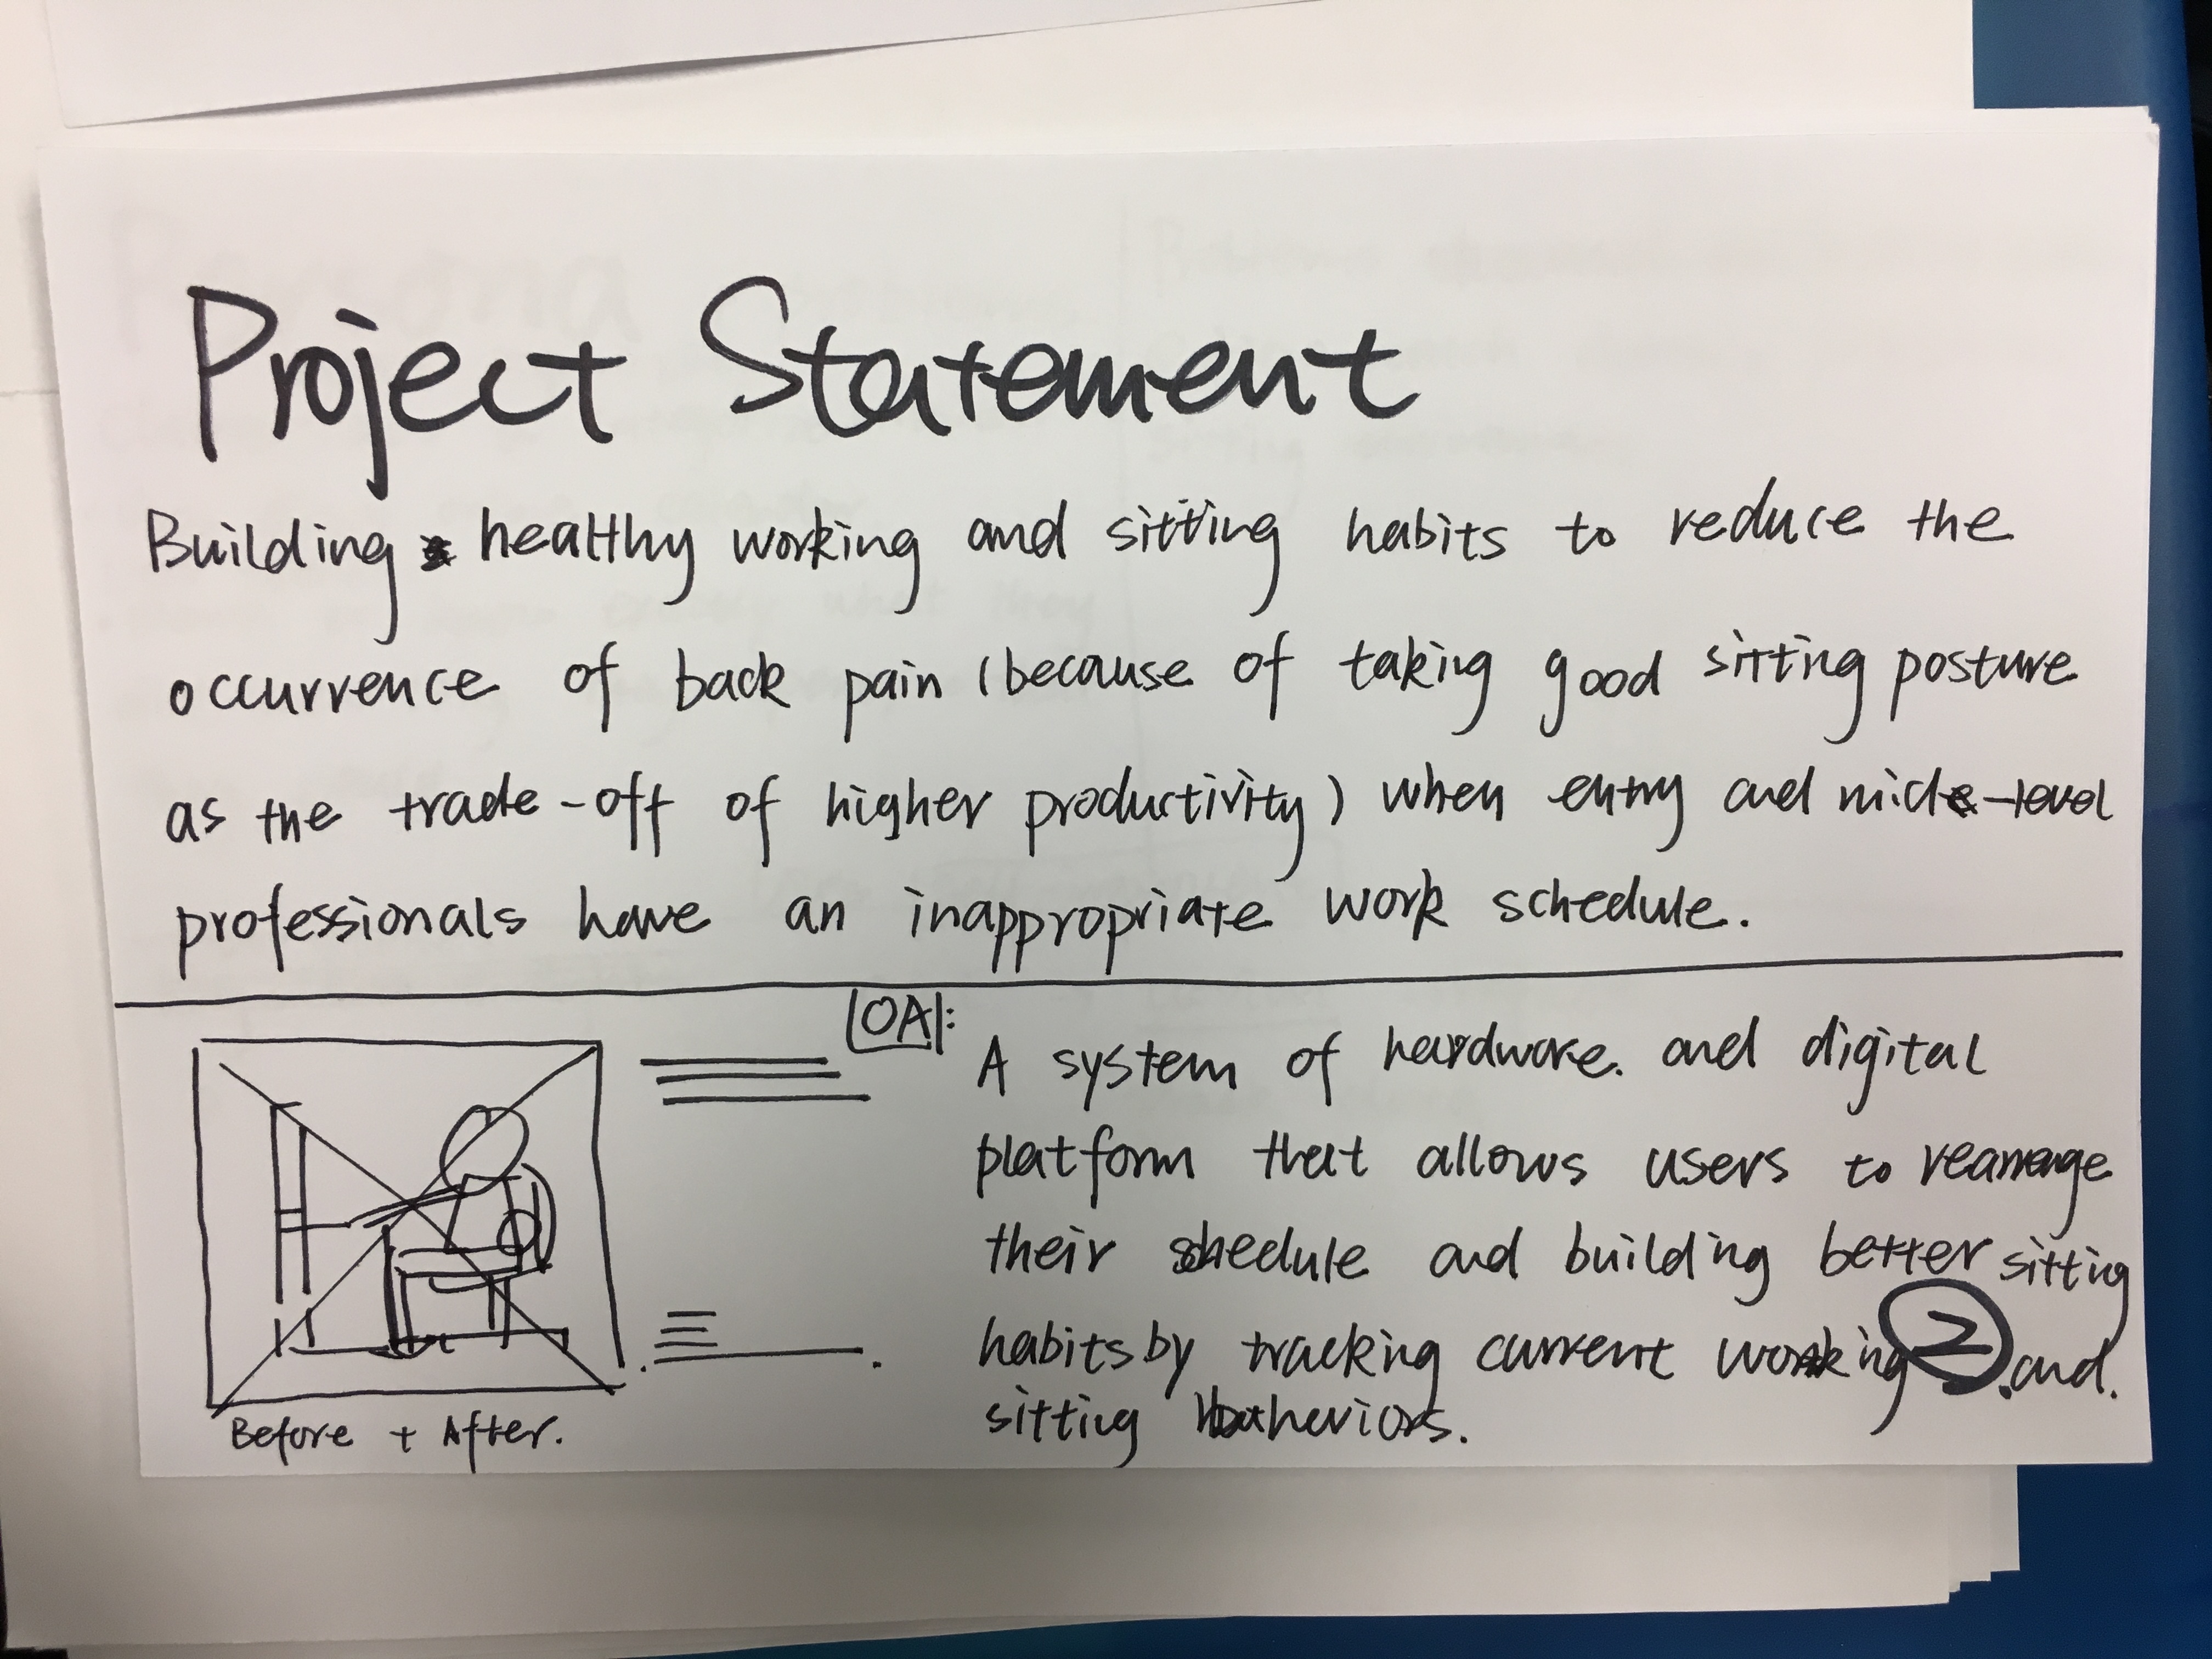 Project Statement
Building healthy working and sitting habits to reduce the
occurrence of back pain (because of taking good sitting posture
as the trade-off of higher productivity) when entry and mid-level
professionals have an inappropriate work schedule.
OA:
A system of hardware and digital
platform that allows users to rearrange
their schedule and building better sitting
habits by tracking current working and
sitting behaviors.
2
Before + After.